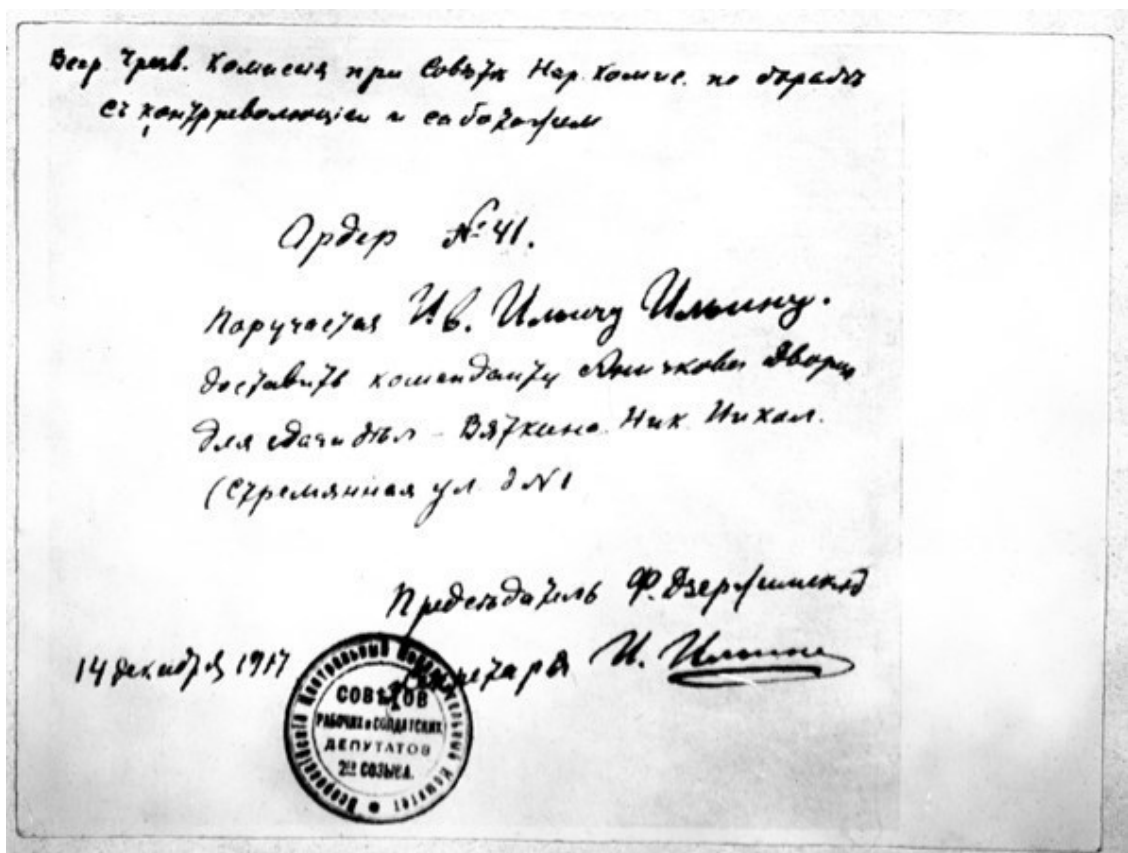 Всер. Чрезв. Комиссія при Совѣтѣ Нар. Комис. по борьбѣ
съ контрреволюціей и саботажем
Ордер № 41.
Поручается Ив. Ильичу Ильину.
доставить коменданту Аничкова Дворца
для сдачи дѣл - Вяткина Ник. Никол.
(Стремянная ул. д № 1
Предсѣдатель Ф. Дзержинскій
14 декабря 1917 Секретарь И. Ильин
Всероссійскій Центральный Исполнительный Комитет
СОВѢТОВ
РАБОЧИХ и СОЛДАТСКИХ
ДЕПУТАТОВ
2го СОЗЫВА.